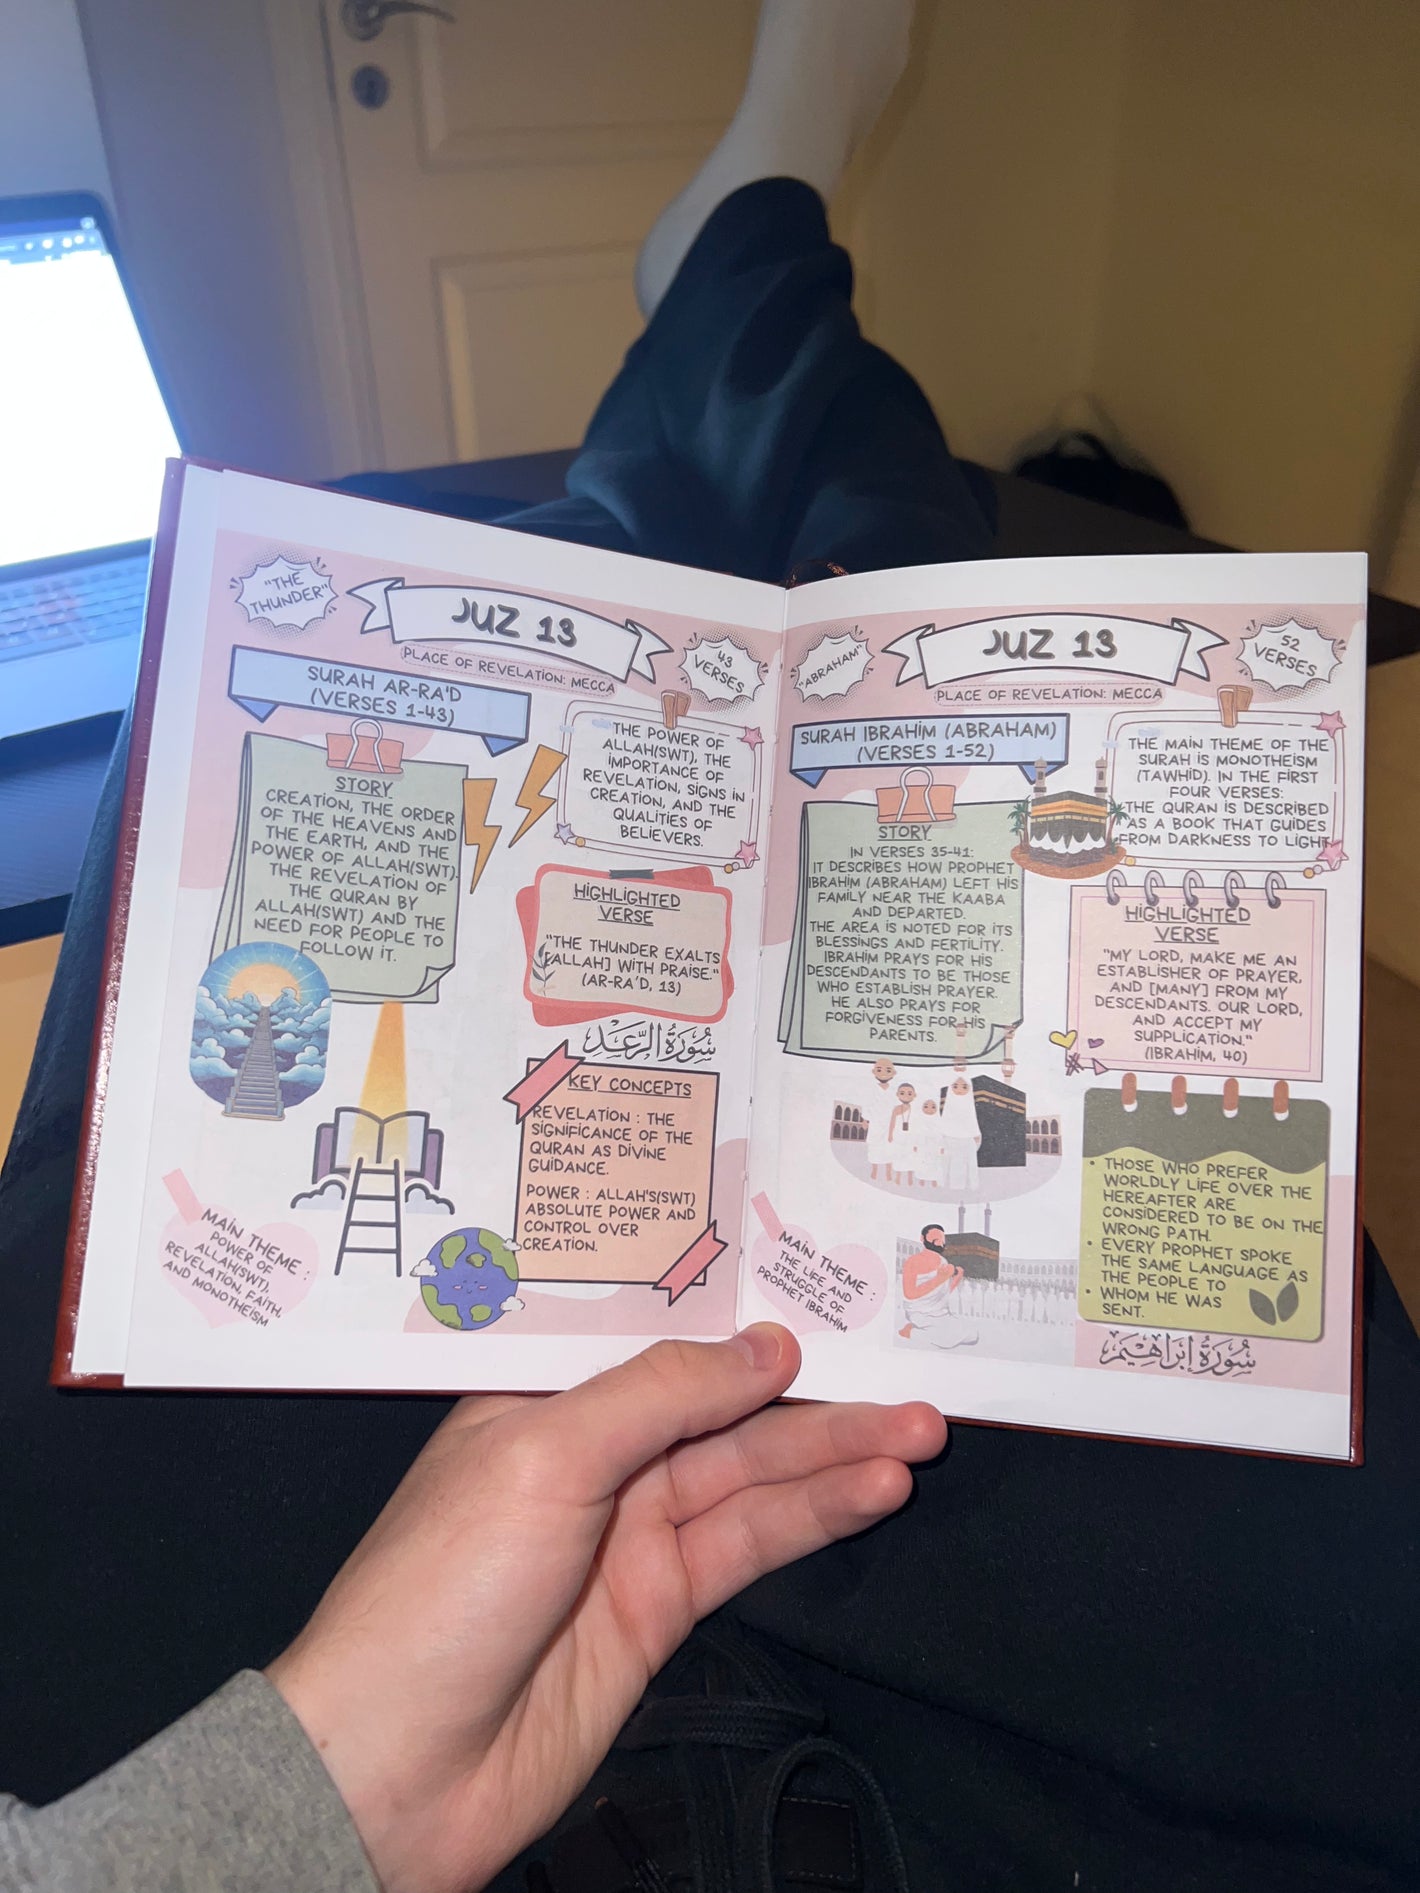 "THE
THUNDER"
JUZ 13
PLACE OF REVELATION: MECCA
43
VERSES
SURAH AR-RA'D
(VERSES 1-43)
STORY
CREATION, THE ORDER
OF THE HEAVENS AND
THE EARTH, AND THE
POWER OF ALLAH(SWT).
THE REVELATION OF
THE QURAN BY
ALLAH(SWT) AND THE
NEED FOR PEOPLE TO
FOLLOW IT.
THE POWER OF
ALLAH(SWT), THE
IMPORTANCE OF
REVELATION, SIGNS IN
CREATION, AND THE
QUALITIES OF
BELIEVERS.
HIGHLIGHTED
VERSE
"THE THUNDER EXALTS
[ALLAH] WITH PRAISE."
(AR-RA'D, 13)
سُورَةُ الرَّعْدِ
KEY CONCEPTS
REVELATION : THE
SIGNIFICANCE OF THE
QURAN AS DIVINE
GUIDANCE.
POWER : ALLAH'S(SWT)
ABSOLUTE POWER AND
CONTROL OVER
CREATION.
MAIN THEME :
POWER OF
ALLAH(SWT),
REVELATION, FAITH,
AND MONOTHEISM
"ABRAHAM"
JUZ 13
PLACE OF REVELATION: MECCA
52
VERSES
SURAH IBRAHIM (ABRAHAM)
(VERSES 1-52)
STORY
IN VERSES 35-41:
IT DESCRIBES HOW PROPHET
IBRAHIM (ABRAHAM) LEFT HIS
FAMILY NEAR THE KAABA
AND DEPARTED.
THE AREA IS NOTED FOR ITS
BLESSINGS AND FERTILITY.
IBRAHIM PRAYS FOR HIS
DESCENDANTS TO BE THOSE
WHO ESTABLISH PRAYER.
HE ALSO PRAYS FOR
FORGIVENESS FOR HIS
PARENTS.
THE MAIN THEME OF THE
SURAH IS MONOTHEISM
(TAWHID). IN THE FIRST
FOUR VERSES:
THE QURAN IS DESCRIBED
AS A BOOK THAT GUIDES
FROM DARKNESS TO LIGHT
HIGHLIGHTED
VERSE
"MY LORD, MAKE ME AN
ESTABLISHER OF PRAYER,
AND [MANY] FROM MY
DESCENDANTS. OUR LORD,
AND ACCEPT MY
SUPPLICATION."
(IBRAHIM, 40)
• THOSE WHO PREFER
WORLDLY LIFE OVER THE
HEREAFTER ARE
CONSIDERED TO BE ON THE
WRONG PATH.
• EVERY PROPHET SPOKE
THE SAME LANGUAGE AS
THE PEOPLE TO
• WHOM HE WAS
SENT.
MAIN THEME :
THE LIFE AND
STRUGGLE OF
PROPHET IBRAHIM
سُورَةُ إِبْرَاهِيْمَ